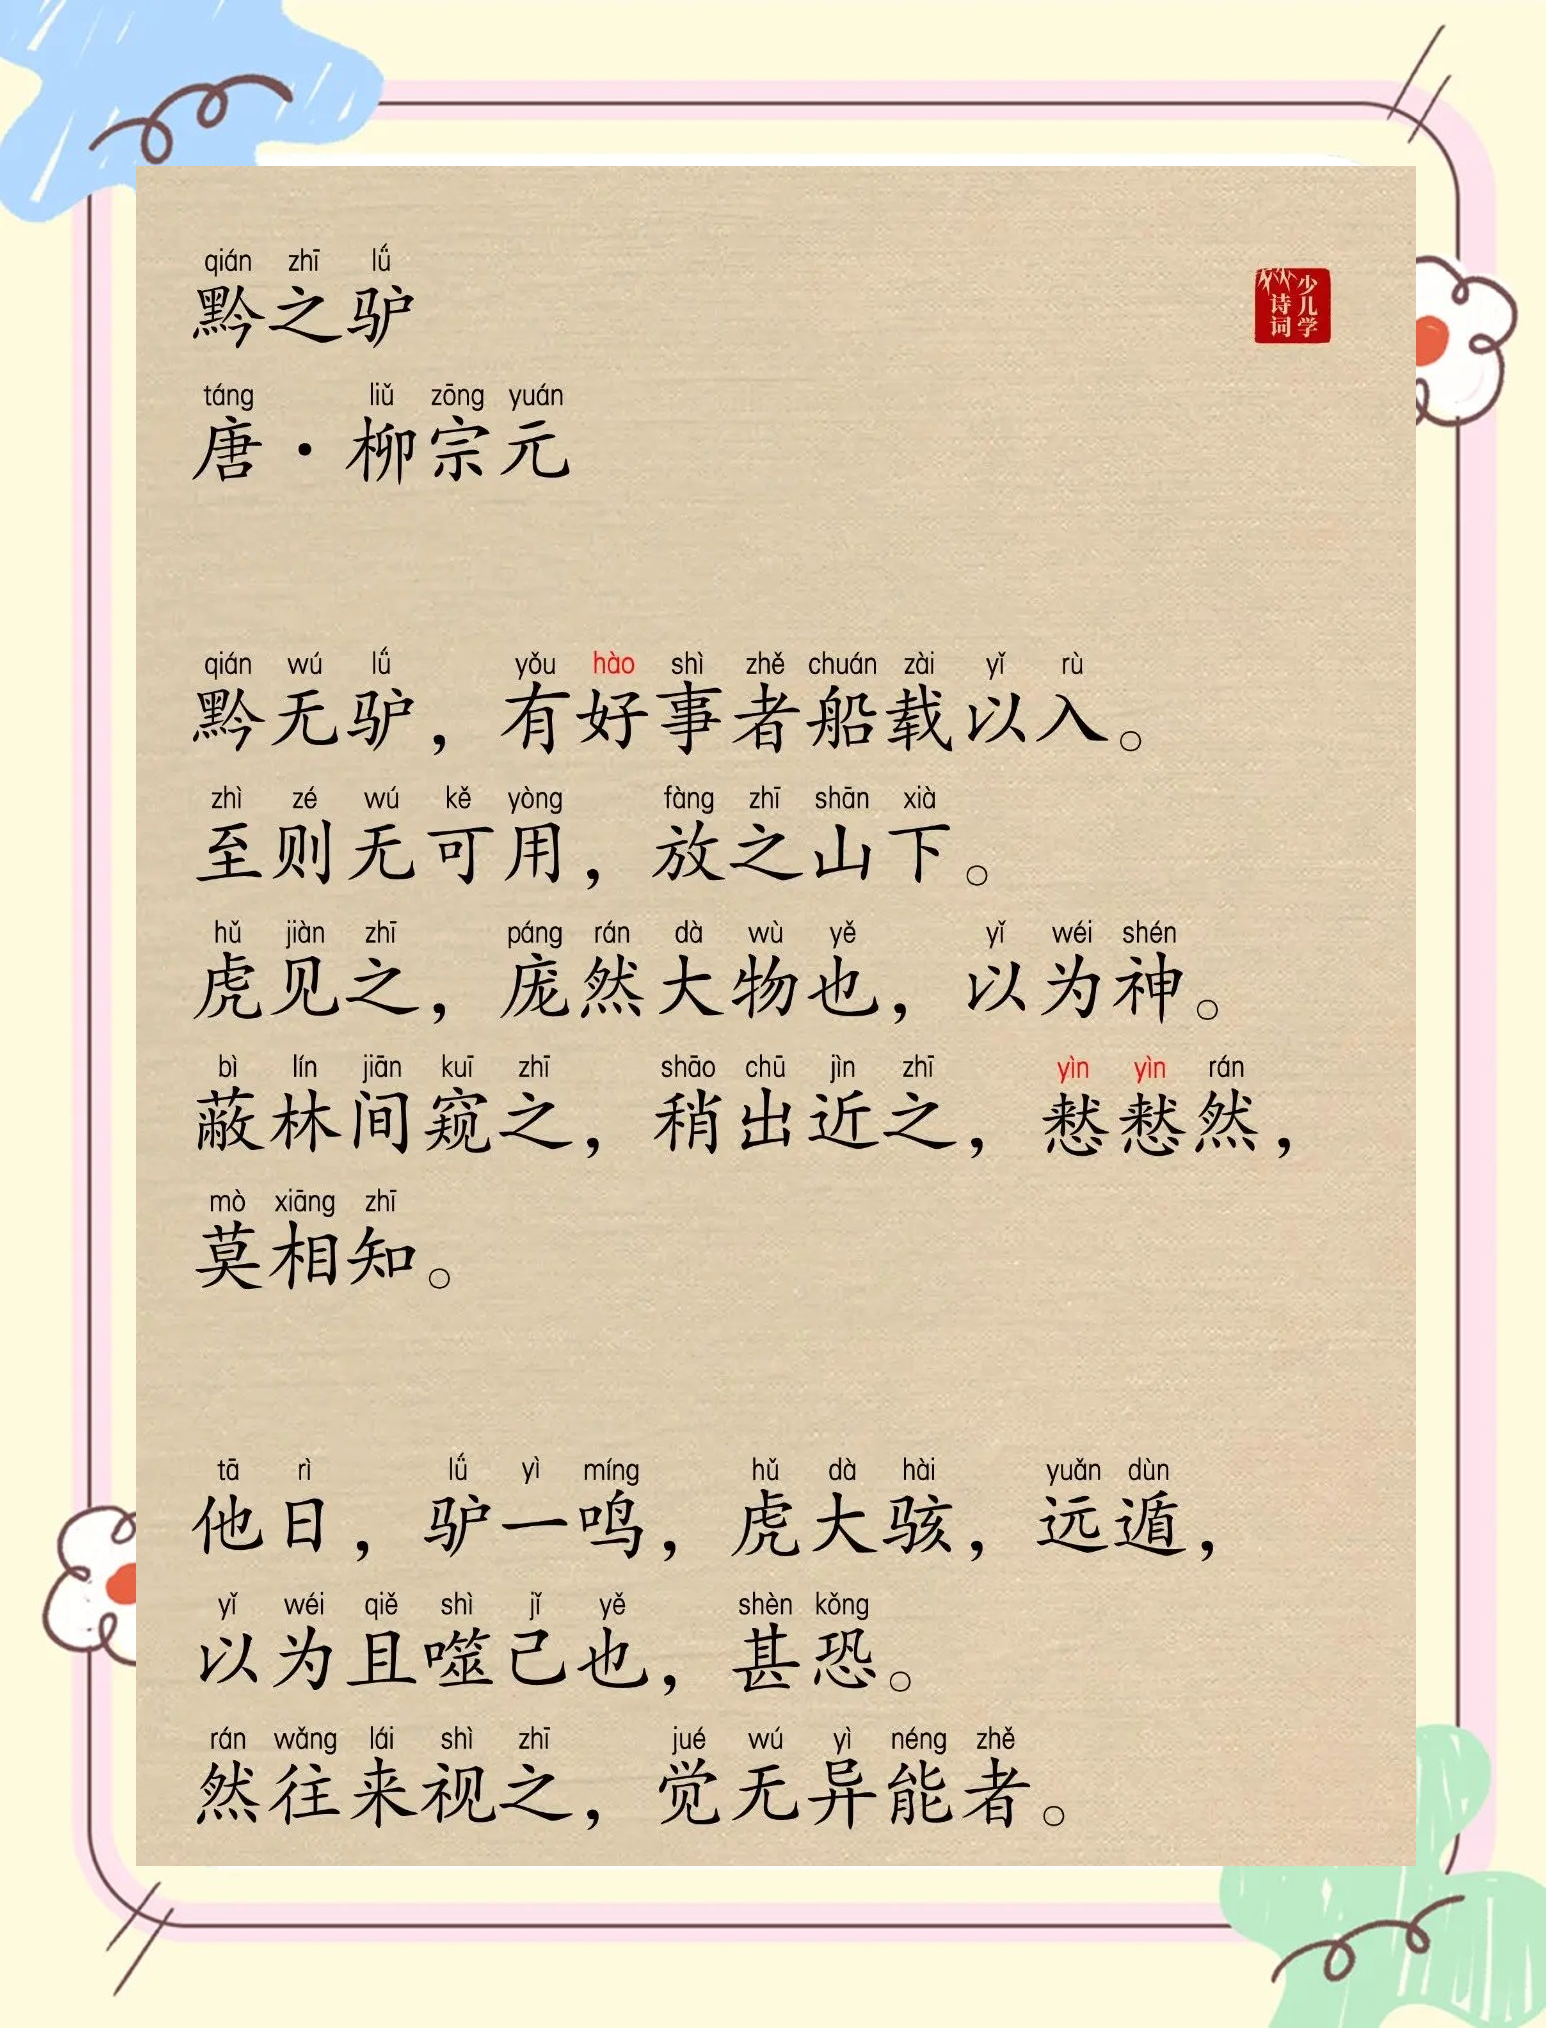 qián zhī lǘ
黔之驴
少儿学
诗词
táng liǔ zōng yuán
唐·柳宗元
qián wú lǘ yǒu hào shì zhě chuán zài yǐ rù
黔无驴，有好事者船载以入。
zhì zé wú kě yòng fàng zhī shān xià
至则无可用，放之山下。
hǔ jiàn zhī páng rán dà wù yě yǐ wéi shén
虎见之，庞然大物也，以为神。
bì lín jiān kuī zhī shāo chū jìn zhī yìn yìn rán
蔽林间窥之，稍出近之，慭慭然，
mò xiāng zhī
莫相知。
tā rì lǘ yì míng hǔ dà hài yuǎn dùn
他日，驴一鸣，虎大骇，远遁，
yǐ wéi qiě shì jǐ yě shèn kǒng
以为且噬己也，甚恐。
rán wǎng lái shì zhī jué wú yì néng zhě
然往来视之，觉无异能者。